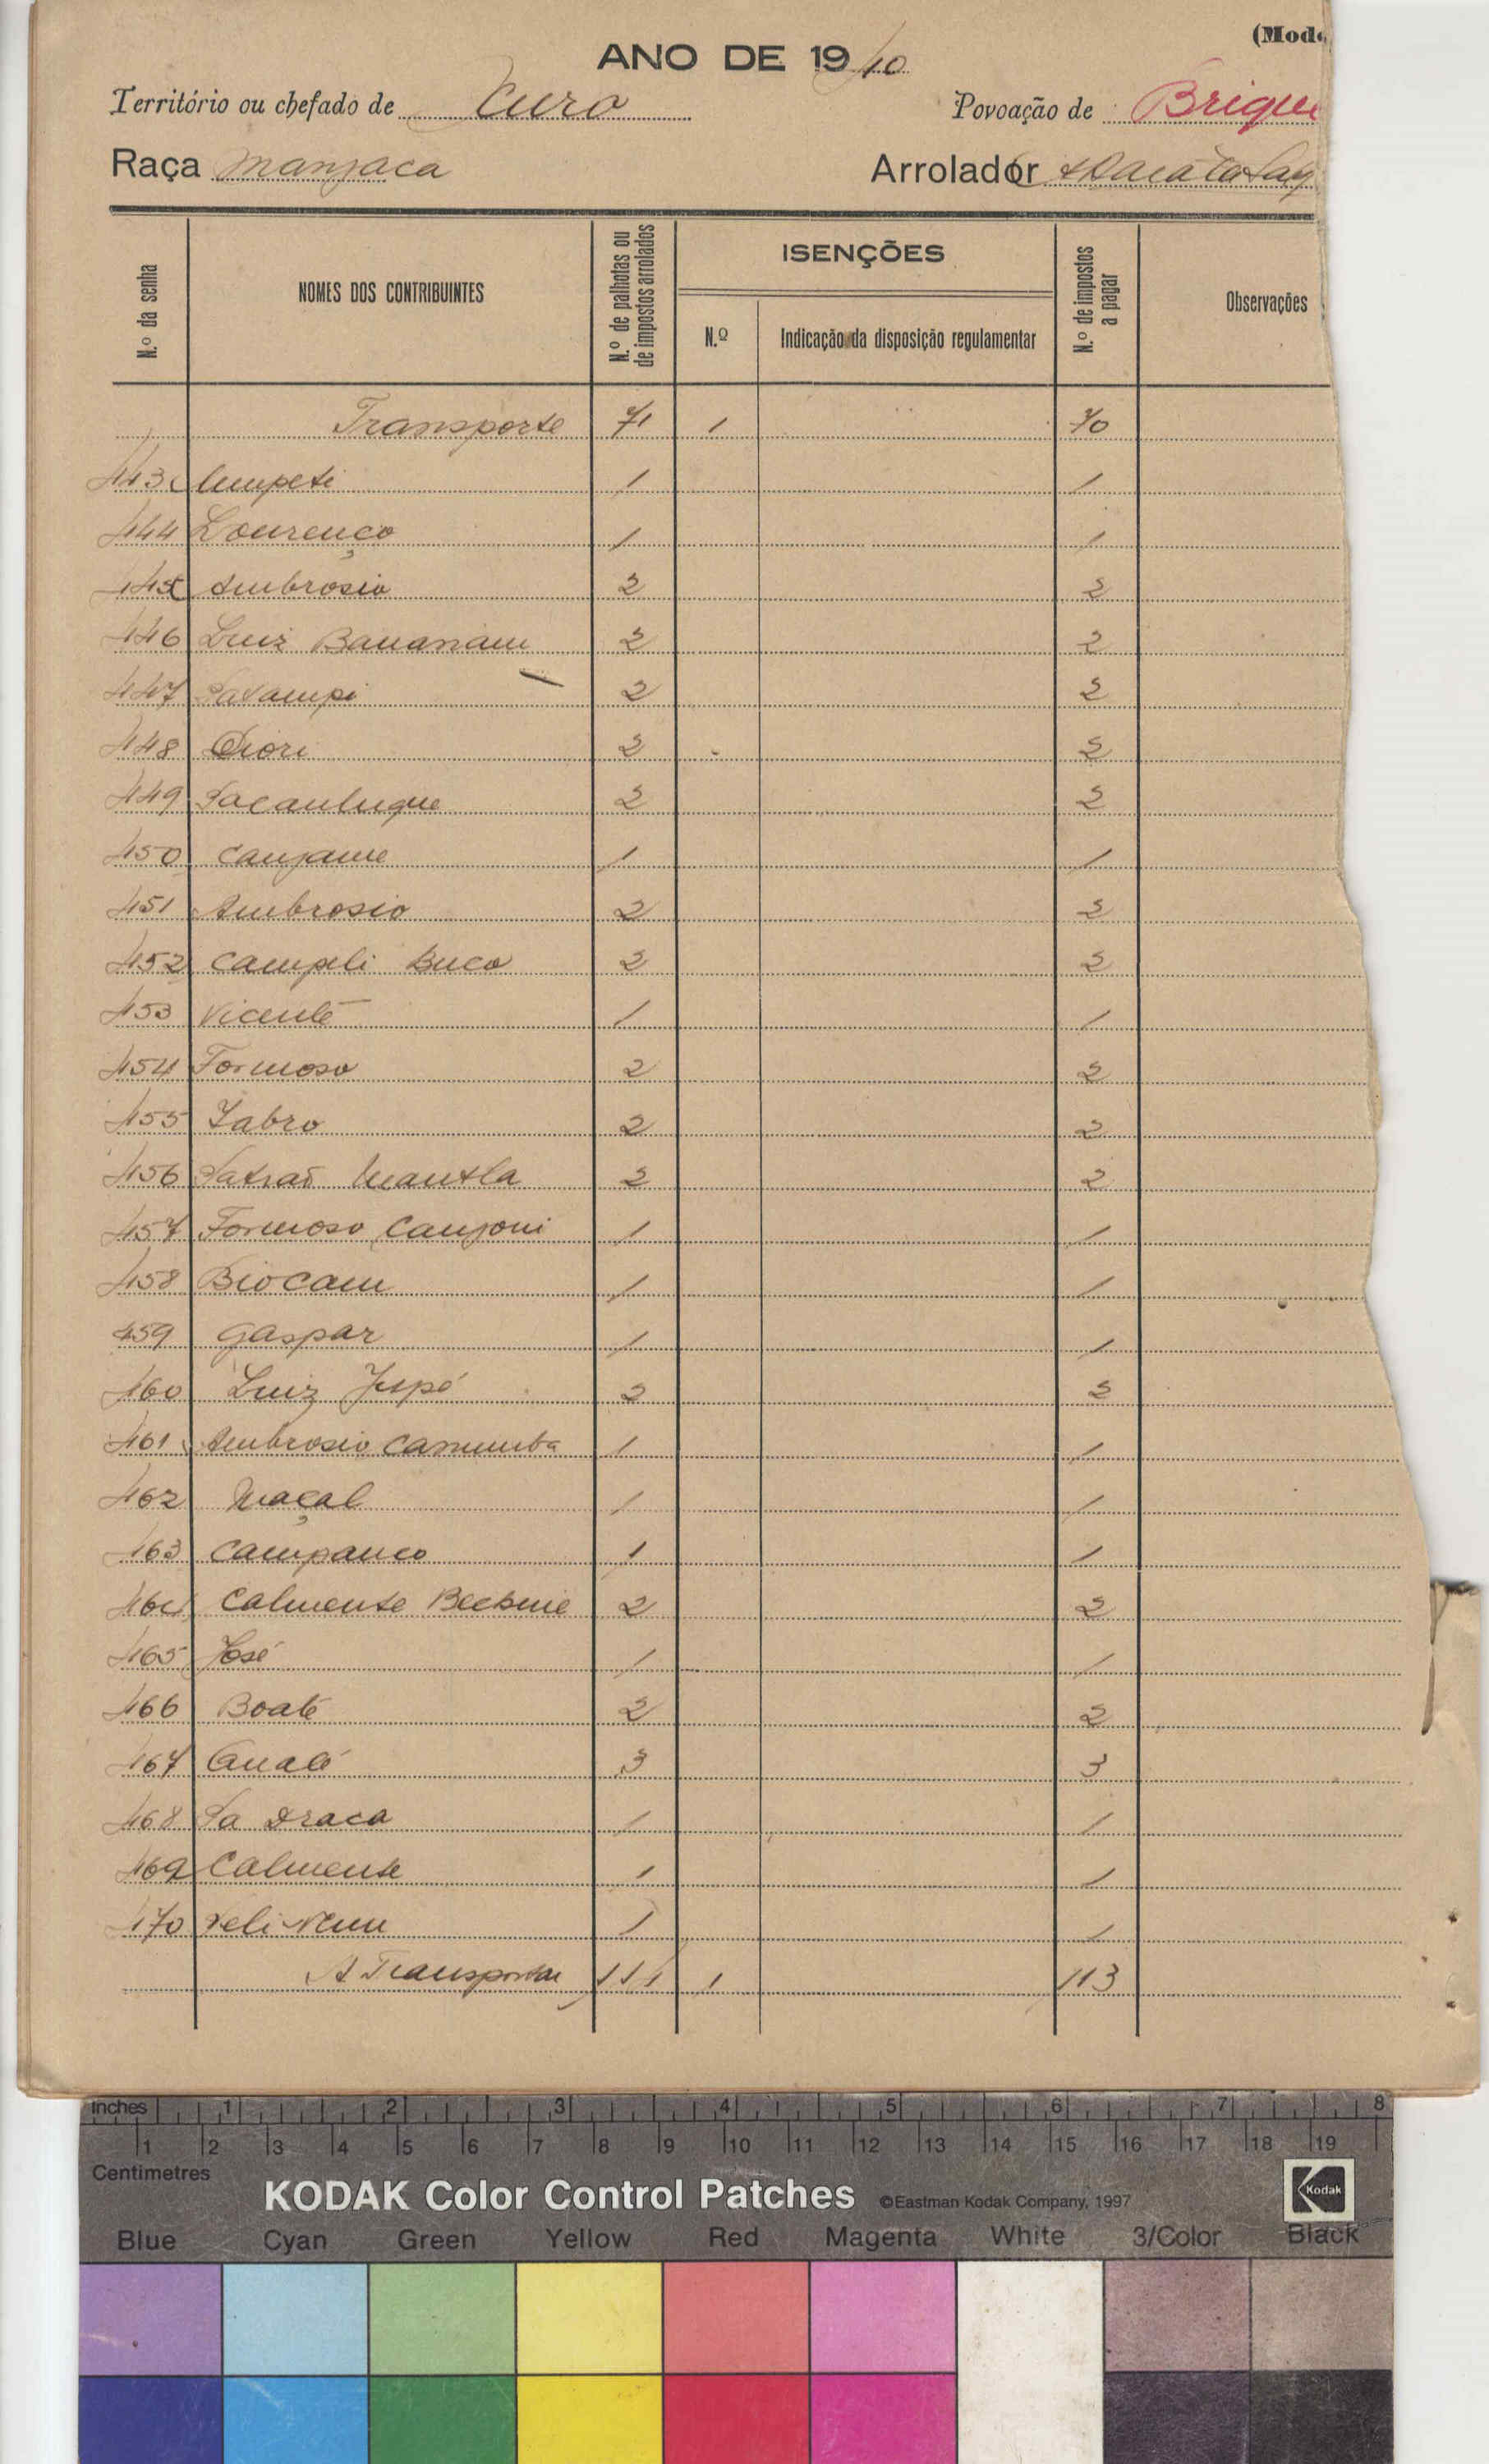 (Mod
ANO DE 1940
Território ou chefado de Curo Povoação de Brique
Raça Manjaca Arrolador
N.º da senha NOMES DOS CONTRIBUINTES N.º de palhotas ou de impostos arrolados ISENÇÕES N.º Indicação da disposição regulamentar N.º de impostos a pagar Observações
Transporte 71 1 70
443 1 1
444 Lourenço 1 1
445 Ambrosio 2 2
446 Luiz 2 2
447 2 2
448 2 2
449 2 2
450 Canjame 1 1
451 Ambrosio 2 2
452 Campeli Buco 2 2
453 Vicente 1 1
454 Formoso 2 2
455 Jabro 2 2
456 2 2
457 Formoso Canjoni 1 1
458 Biocam 1 1
459 Gaspar 1 1
460 Luiz 2 2
461 Ambrosio 1 1
462 Maçal 1 1
463 Campanco 1 1
464 Calmente 2 2
465 José 1 1
466 Boaté 2 2
467 3 3
468 1 1
469 Calmente 1 1
470 1 1
A Transportar 111 1 113
inches 1 2 3 4 5 6 7 8
1 2 3 4 5 6 7 8 9 10 11 12 13 14 15 16 17 18 19
Centimetres
KODAK Color Control Patches ©Eastman Kodak Company, 1997 Kodak
Blue Cyan Green Yellow Red Magenta White 3/Color Black